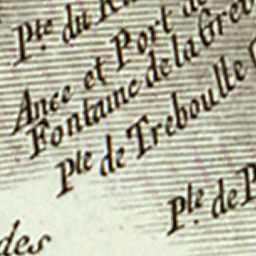 Pte. du
Ance et Port de
Fontaine de la Gre
Pte de Treboulle
Pte. de P
des